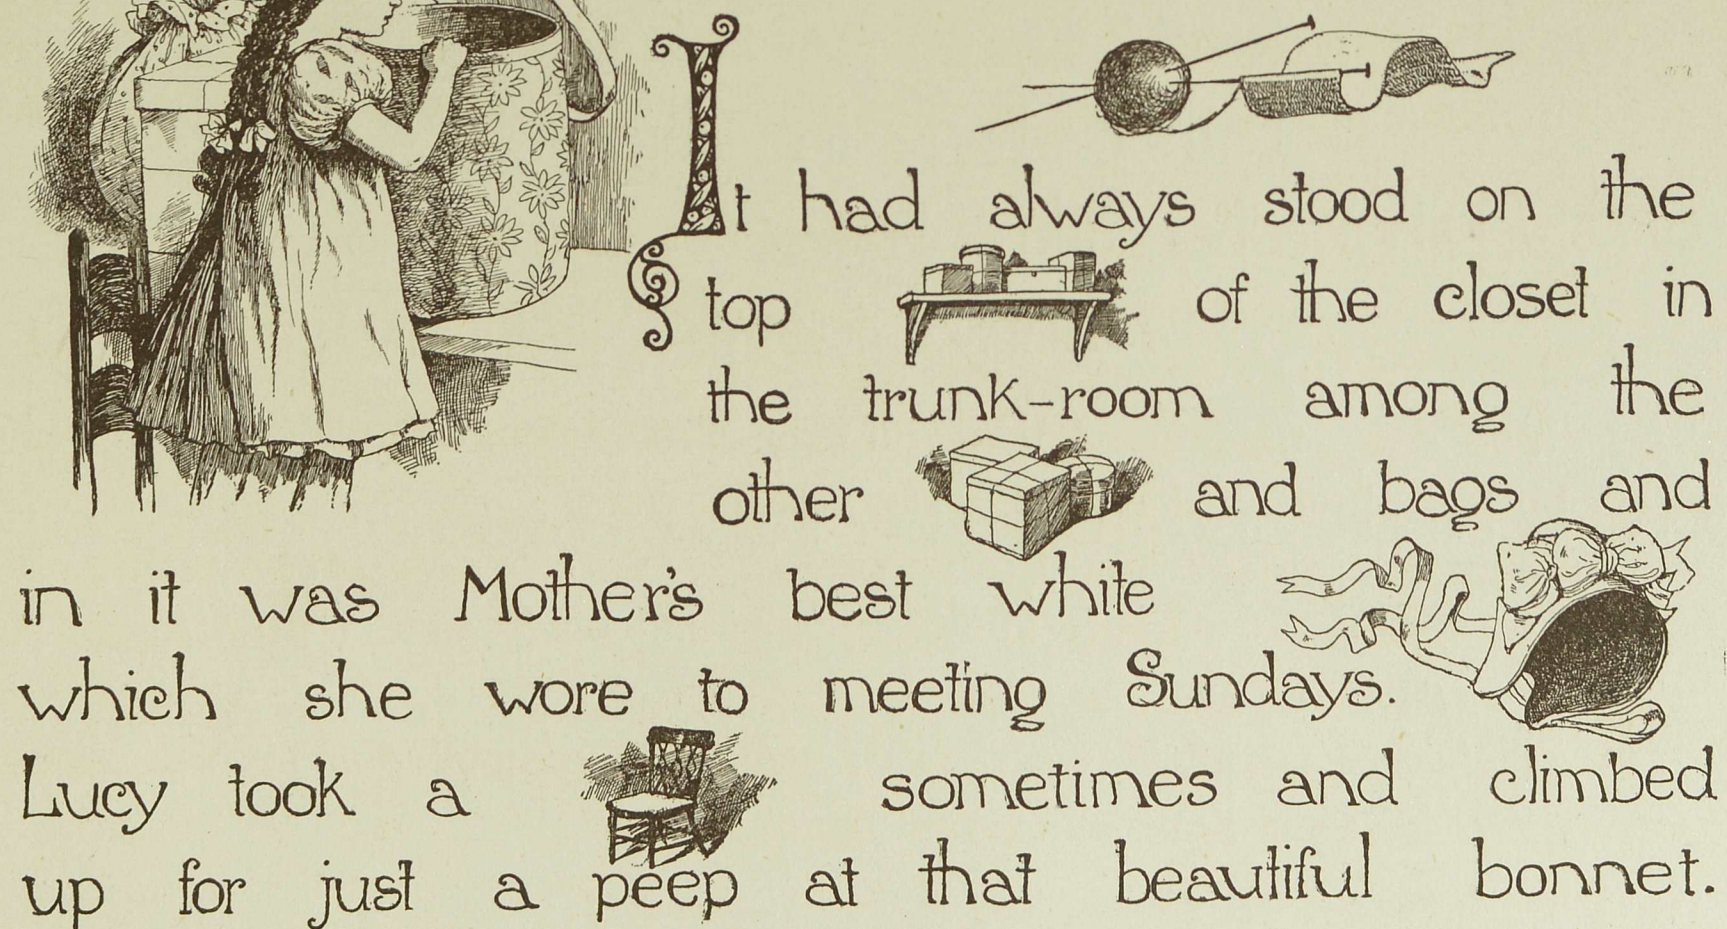 It had always stood on the
top of the closet in
the trunk-room among the
other and bags and
in it was Mother's best white
which she wore to meeting Sundays.
Lucy took a sometimes and climbed
up for just a peep at that beautiful bonnet.